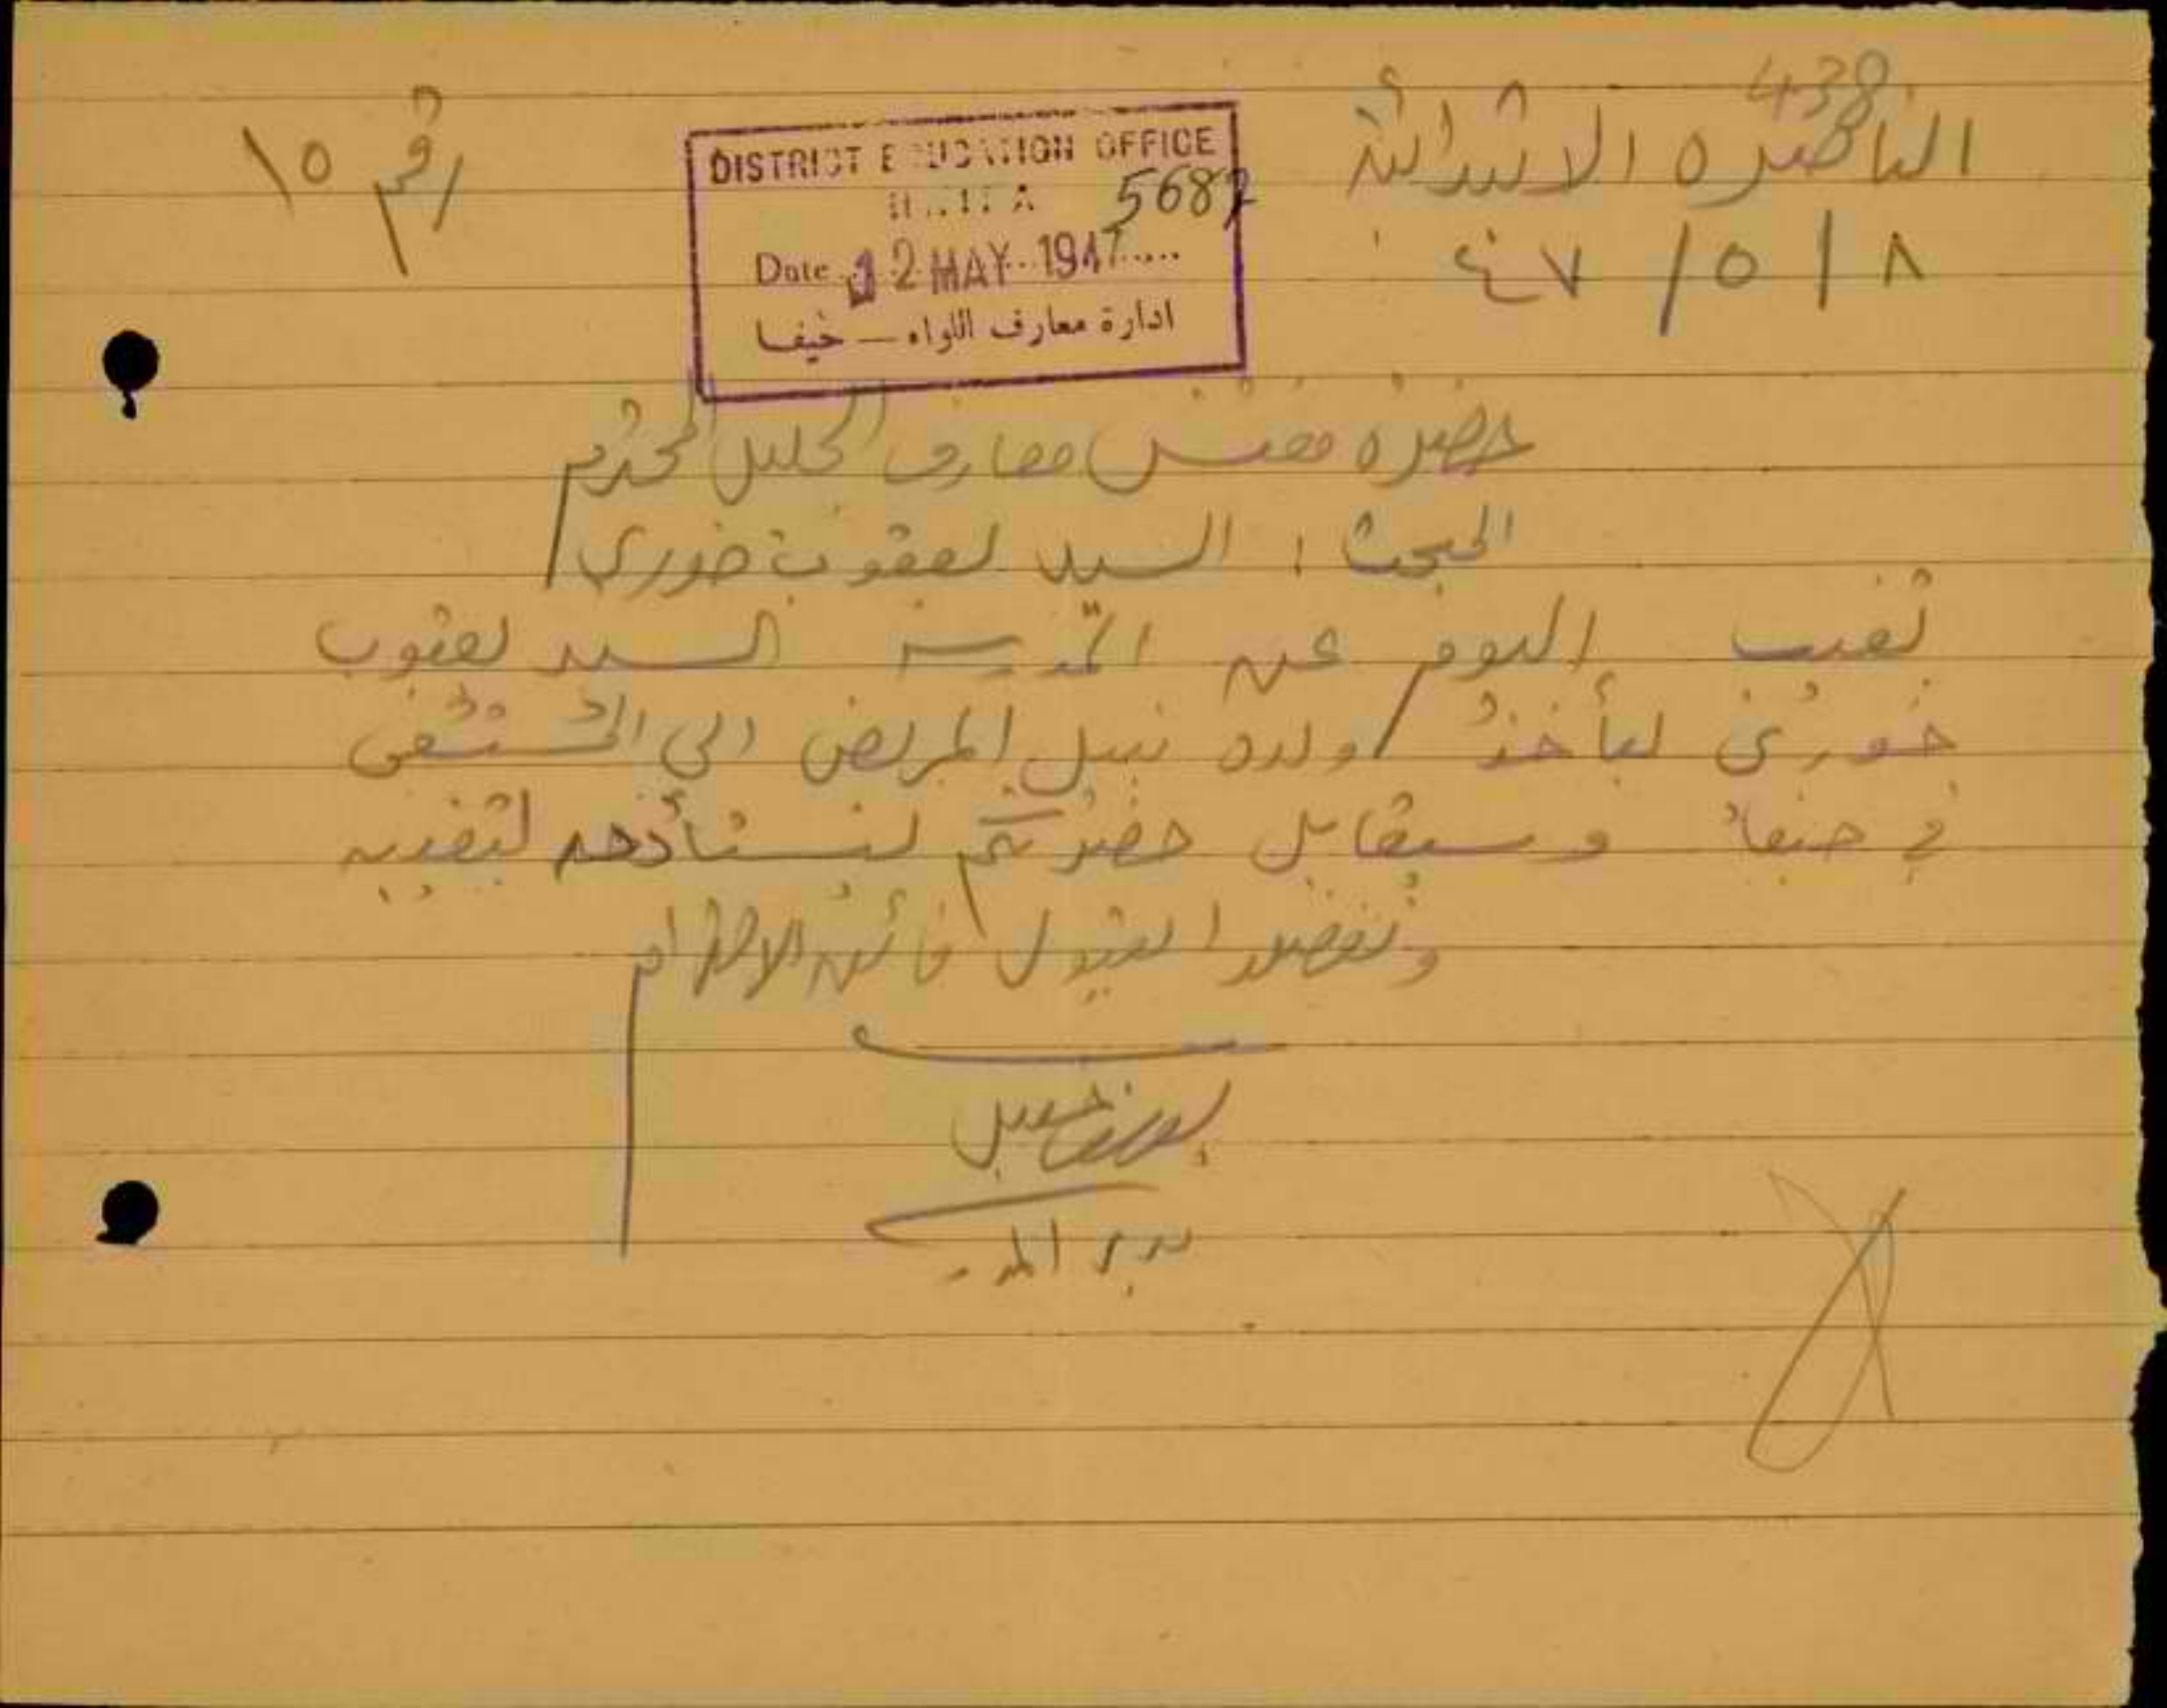 438
الناصره الابتدائية
رقم ١٥
٨ / ٥ / ٤٧
DISTRICT EDUCATION OFFICE
HAIFA 5687
Date 12 MAY 1947
ادارة معارف اللواء — حيفا
حضرة مفتش معارف الجليل المحترم
المبحث : السيد يعقوب خوري
تغيب اليوم عن المدرسة السيد يعقوب
خوري ليأخذ ولده نبيل المريض الى المستشفى
في حيفا وسيقابل حضرتكم ليستأذن لتغيبه
وتفضلوا بقبول فائق الاحترام
مدير المدرسة